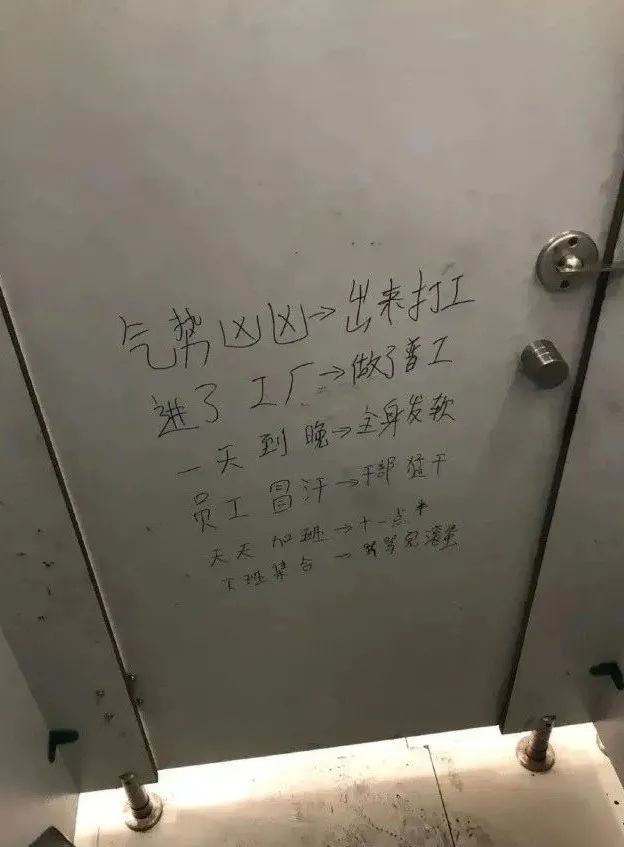 气势凶凶→出来打工
进了工厂→做了普工
一天到晚→全身发软
员工冒汗→干部猛干
天天加班→十一点半
下班集合→哭哭完蛋